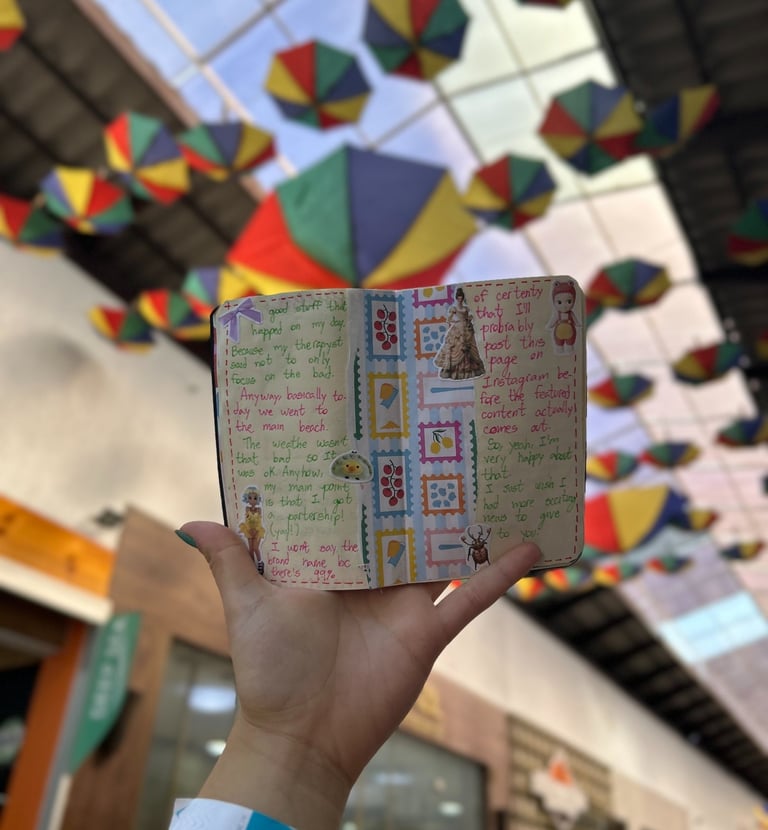 good stuff that
happened on my day.
Because my therapyst
said not to only
focus on the bad.
Anyway, basically to-
day we went to
the main beach.
The weathe wasn't
that bad so it
was ok. Anyhow,
my main point
is that I got
a partership!
(yay!)
I wont say the
brand name bc
there's 99%
of certenty
that I'll
probrably
post this
page on
Instagram be-
fore the featured
content actually
comes out.
So, yeah. I'm
very happy about
that.
I just wish I
had more exciting
news to give
to you.